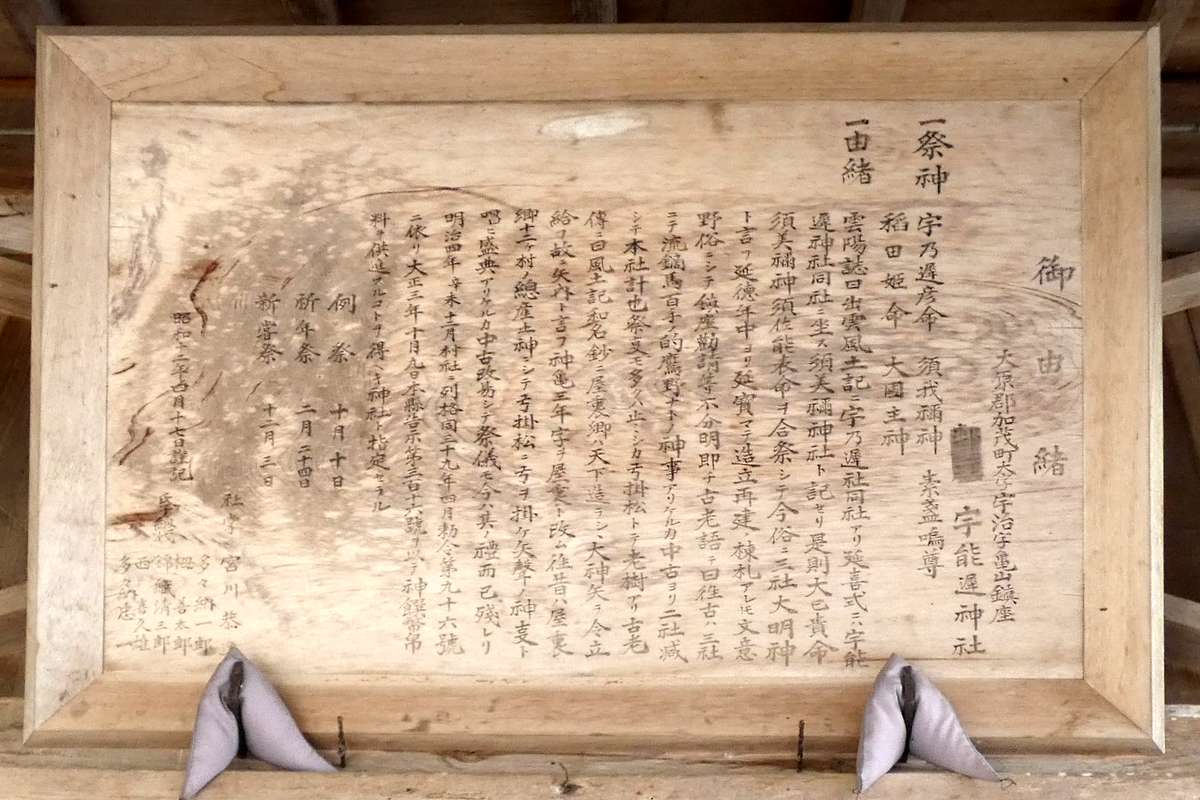 御由緒
大原郡加茂町大字宇治字亀山鎮座
宇能遅神社
一祭神 宇乃遅彦命 須我禰神 素盞嗚尊
稲田姫命 大國主神
一由緒 雲陽誌曰出雲風土記ニ宇乃遅社同社アリ延喜式ニハ宇能
遅神社同社ニ坐ス須美禰神社ト記セリ是則大已貴命
須美禰神須佐能表命ヲ合祭シテ今俗ニ三社大明神
ト言フ延徳年中ヨリ延寳マテ造立再建ノ棟札アレモ文意
野俗ニシテ鎮座勸請等不分明即チ古老語テ曰往古ハ三社
ニテ流鏑馬百手ノ的鷹野ナトノ神事アリケルカ中古ヨリ二社減
シテ本社計也祭又モ多ク止ミシカ弓掛松トテ老樹アリ古老
傳ニ曰風土記和名鈔ニ屋裏郷ハ天下造ラシヽ大神矢ヲ令立
給フ故ニ矢内ト言フ神亀三年字ヲ屋裏ト改ム往昔ハ屋裏
郷十二ヶ村ノ總産土神ニシテ弓掛松ニ弓ヲ掛ケ矢聲ノ神事ト
唱ヘ盛典アリケルカ中古改易シテ祭儀モ今ハ其ノ禮而已殘レリ
明治四年辛未十二月村社ニ列格同三十九年四月勅令第九十六號
ニ依リ大正三年十月九日本縣告示第三百十六號ヲ以テ神饌幣帛
料ヲ供進スルコトヲ得ヘキ神社ト指定セラル
例祭 十月十日
祈年祭 二月二十四日
新嘗祭 十二月三日
昭和二年四月十七日謹記
社掌 宮川
多々納一郎
善太郎
錦織清三郎
西
多々納忠一